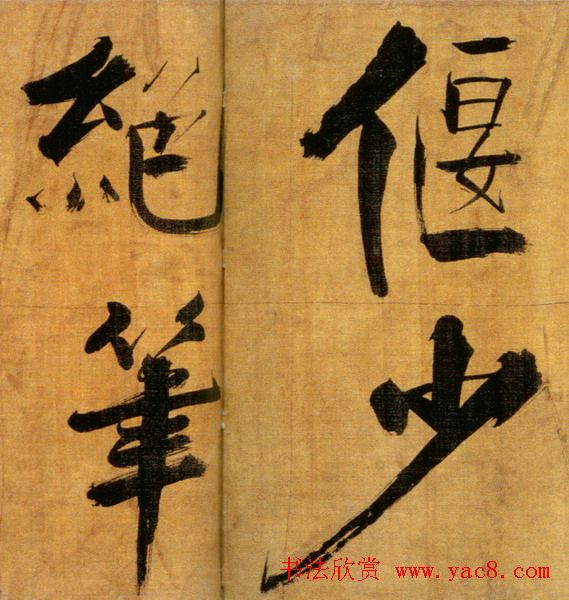 偃少
絶筆
书法欣赏 www.yac8.com